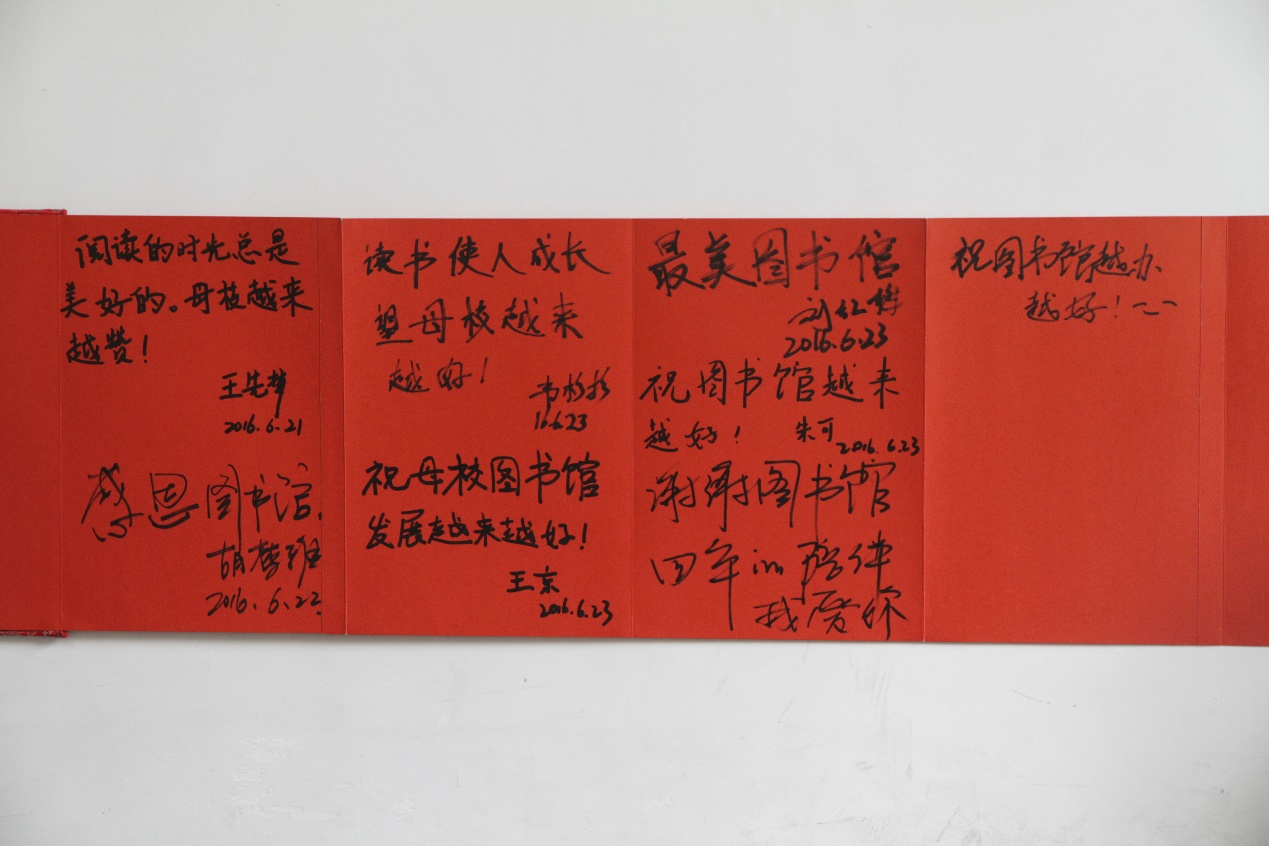 阅读的时光总是
美好的。母校越来
越赞!
王先梦
2016.6.21
感恩图书馆.
胡梦雅
2016.6.22
读书使人成长
望母校越来
越好!
韦杉杉
16.6.23
祝母校图书馆
发展越来越好!
王京
2016.6.23
最美图书馆
刘红
2016.6.23
祝图书馆越来
越好! 朱可 2016.6.23
谢谢图书馆
四年in陪伴
我爱你
祝图书馆越办
越好!